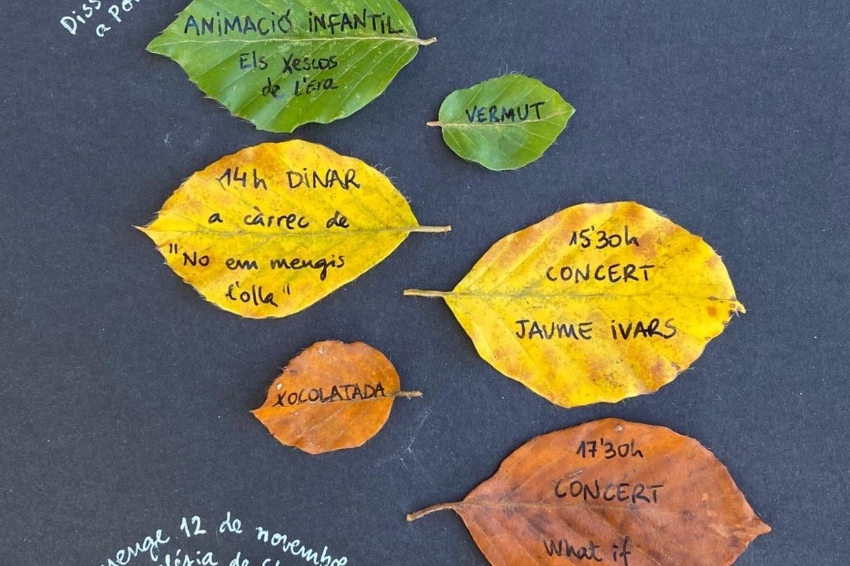 ANIMACIÓ INFANTIL
Els Xescos
de l'Era
VERMUT
14h DINAR
a càrrec de
"No em mengis
l'olla"
15'30h
CONCERT
JAUME IVARS
XOCOLATADA
17'30h
CONCERT
What if
12 de novembre
de